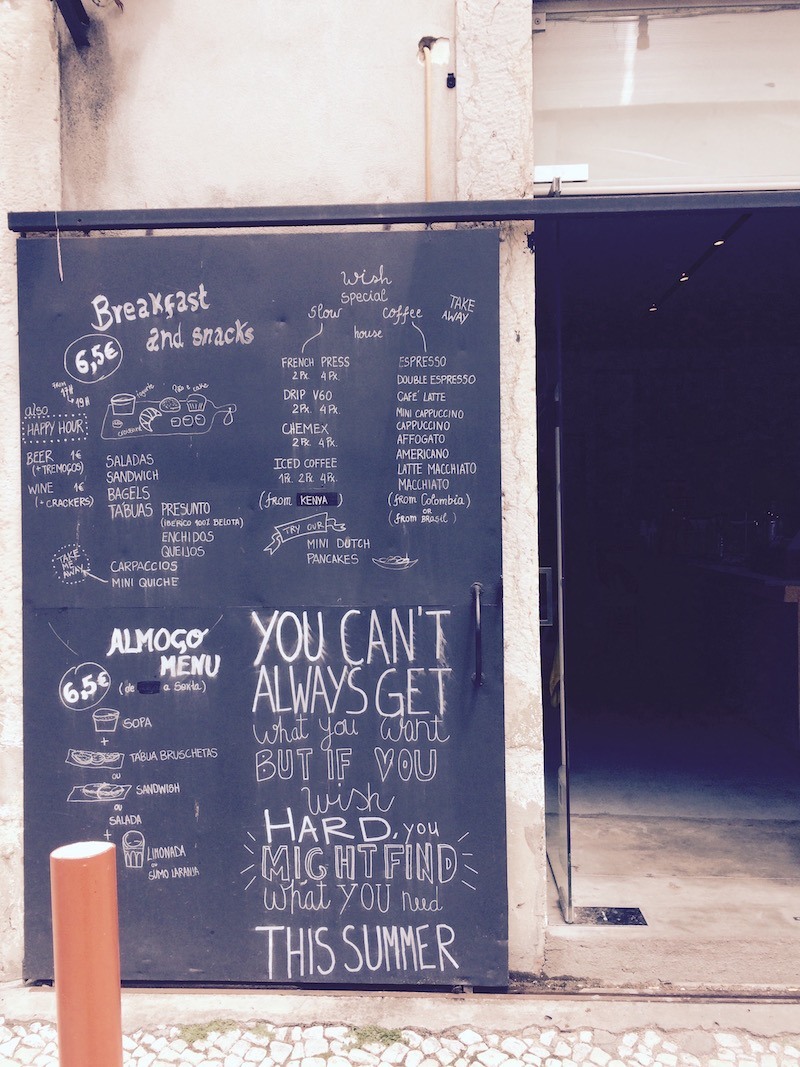 Breakfast
and snacks
6,5€
iogurte
Pão e cake
croissant
from
17H
19H
also
HAPPY HOUR
BEER 1€
(+ TREMOÇOS)
WINE 1€
(+ CRACKERS)
SALADAS
SANDWICH
BAGELS
TÁBUAS PRESUNTO
(IBÉRICO 100% BELOTA)
ENCHIDOS
QUEIJOS
TAKE
ME
AWAY
CARPACCIOS
MINI QUICHE
Wish
special
slow coffee
house
TAKE
AWAY
FRENCH PRESS
2 Px. 4 Px.
DRIP V60
2 Px. 4 Px.
CHEMEX
2 Px. 4 Px.
ICED COFFEE
1 Px. 2 Px. 4 Px.
(from KENYA)
TRY OUR
MINI DUTCH
PANCAKES
ESPRESSO
DOUBLE ESPRESSO
CAFÉ LATTE
MINI CAPPUCCINO
CAPPUCCINO
AFFOGATO
AMERICANO
LATTE MACCHIATO
MACCHIATO
(from Colombia)
OR
(from BRASIL)
ALMOÇO
MENU
6,5€
(de a Sexta)
SOPA
+
TÁBUA BRUSCHETAS
ou
SANDWISH
ou
SALADA
+
LIMONADA
ou
SUMO LARANJA
YOU CAN'T
ALWAYS GET
what you want
BUT IF YOU
wish
HARD, you
MIGHT FIND
what YOU need
THIS SUMMER